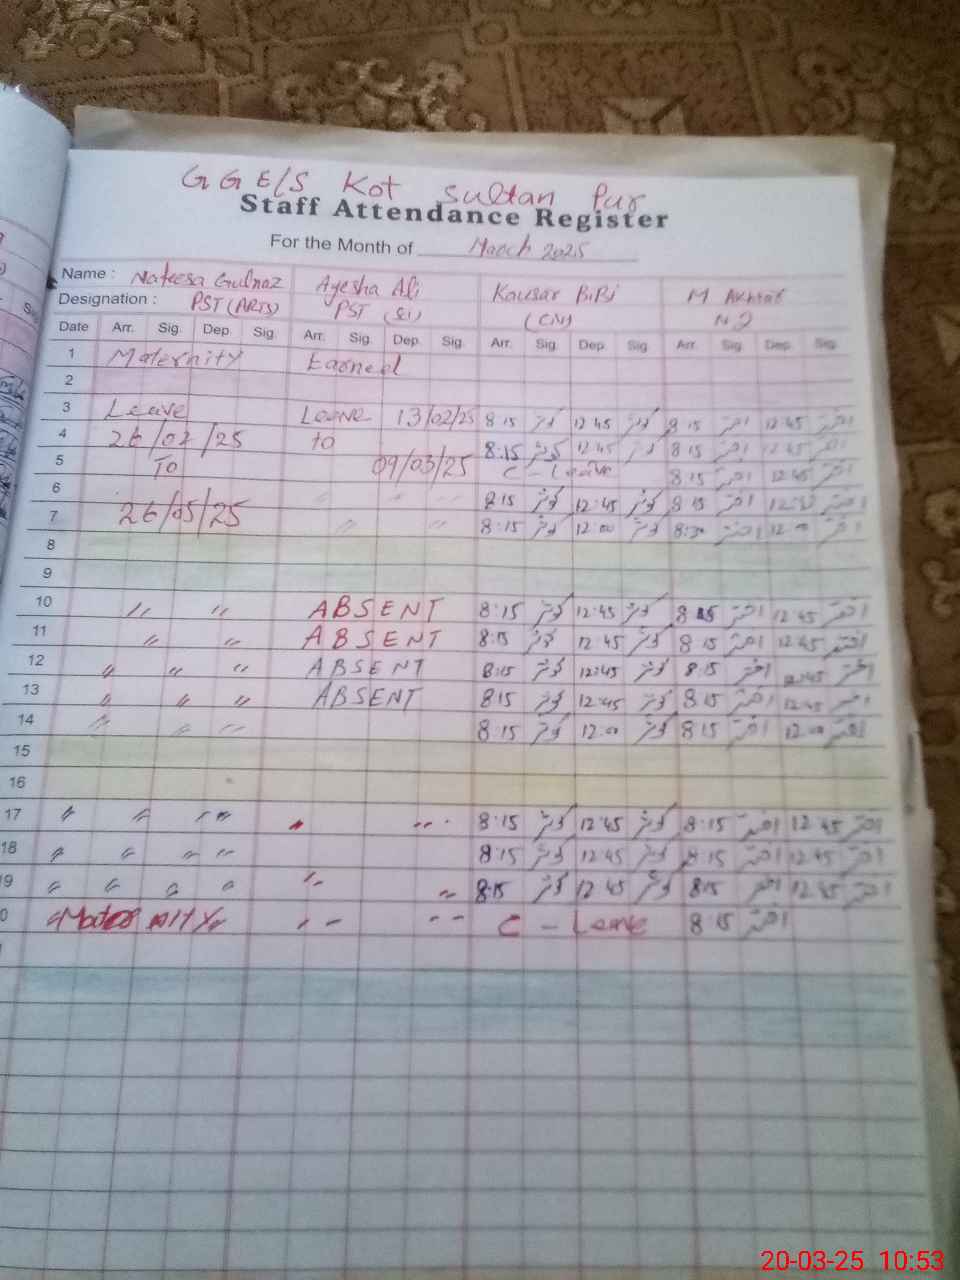 GGE/S Kot Sultan Pur
Staff Attendance Register
For the Month of March 2025
Name : Nafeesa Gulnaz Ayesha Ali Kausar BiBi M Akhtar
Designation : PST (ARTS) PST
Date Arr. Sig. Dep. Sig. Arr. Sig. Dep. Sig. Arr. Sig. Dep. Sig Arr. Sig. Dep. Sig.
1 Maternity Earned
2
3 Leave Leave 13/02/25 8 15 کوثر 12 45 کوثر 8 15 اختر 12 45 اختر
4 26/02/25 to 8:15 کوثر 12:45 کوثر 8 15 اختر 12 45 اختر
5 To 09/03/25 C - Leave 8 15 اختر 12 45 اختر
6 8 15 کوثر 12:45 کوثر 8 15 اختر اختر
7 26/05/25 " " 8:15 کوثر 12:00 کوثر 8:30 اختر 12:00 اختر
8
9
10 " " ABSENT 8:15 کوثر 12:45 کوثر 8 15 اختر 12:45 اختر
11 " " ABSENT 8:15 کوثر 12 45 کوثر 8 15 اختر 12 45 اختر
12 " " " ABSENT 8:15 کوثر 12:45 کوثر 8:15 اختر 12:45 اختر
13 " " " ABSENT 8:15 کوثر 12:45 کوثر 8:15 اختر 12:45 اختر
14 " " " 8:15 کوثر 12:00 کوثر 8 15 اختر 12:00 اختر
15
16
17 " " " " " " 8:15 کوثر 12:45 کوثر 8:15 اختر 12:45 اختر
18 " " " " 8:15 کوثر 12:45 کوثر 8:15 اختر 12:45 اختر
19 " " " " " " 8:15 کوثر 12 45 کوثر 8:15 اختر 12:45 اختر
" " " " C - Leave 8:15 اختر
20-03-25 10:53